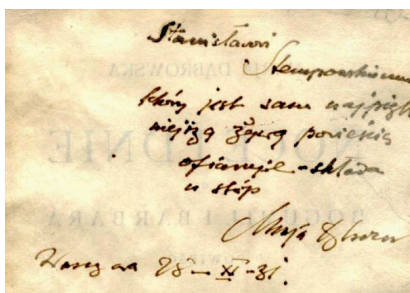 Stanisławowi
Stempowskiemu
który jest sam najpięk
niejszą żywą powieścią
ofiaruje - składa
u stóp
Maja
Warszawa 28 - XI - 31.